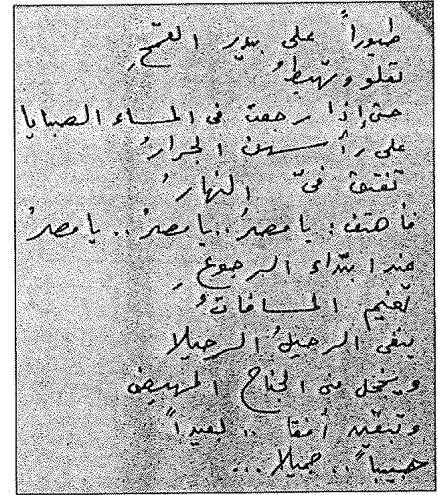 طيوراً على بيدر القمحِ
تعلو وتهبطُ
حتى إذا رجعت فى المساء الصبايا
على رأسهن الجرارُ
تفتق فىّ النهارُ
فأهتف: يا مصرُ.. يا مصرُ.. يا مصرُ
هذا ابتداء الرجوعِ
تغيم المسافاتُ
ينفى الرحيلُ الرحيلا
ويخجل منى الجناح المهيض
وتبقين أفقا .. بعيداً
حبيباً .. جميلا ...